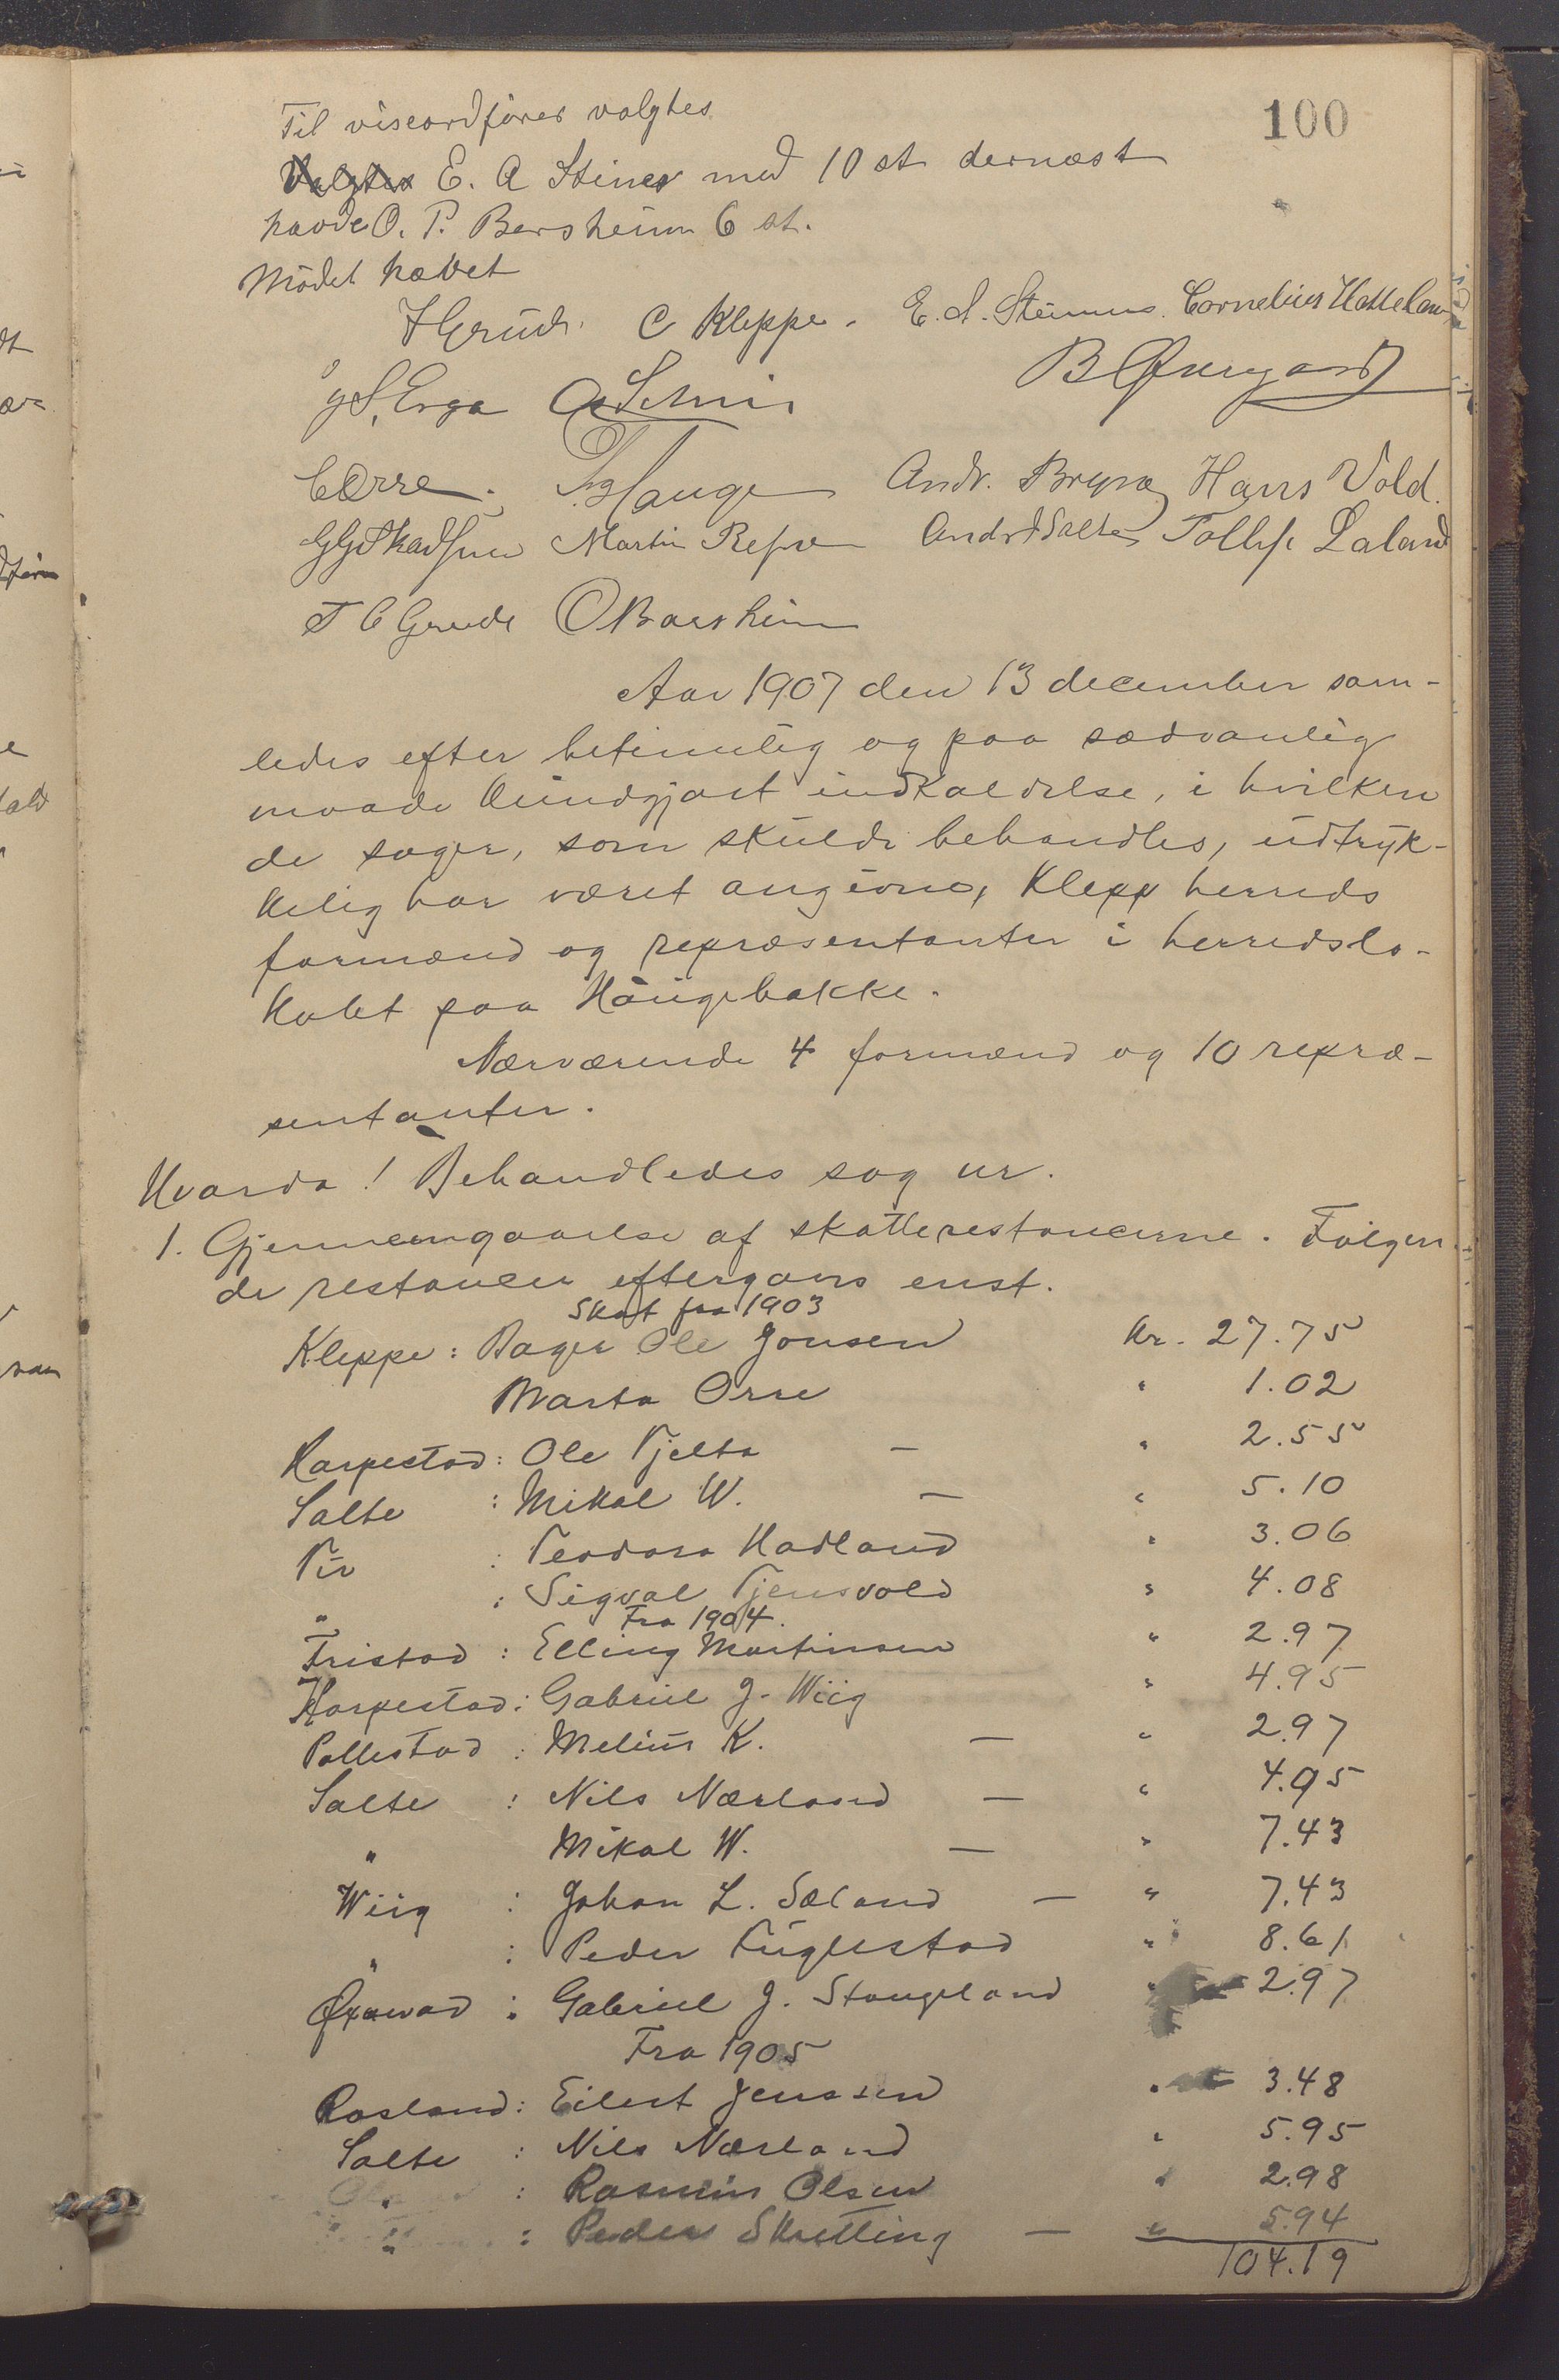 100
Til viseordfører valgtes
Valgtes E. A Stines med 10 st dernæst
havde O. P. Borsheim 6 st.
Mødet hævet
C Kleppe. E. A. Steinnes. Cornelius Hatteland
Erga
COrre. Hauge Andr. Bryne Hans Vold.
Martin Andr Salte Tollef Laland
T C Grude O Borsheim
Aar 1907 den 13 december sam-
ledes efter betimelig og paa sædvanlig
maade kundgjort indkaldelse, i hvilken
de sager, som skulde behandles, udtryk-
kelig har været angivne, Klepp herreds
formænd og repræsentanter i herredslo-
kalet paa Haugebakke.
Nærværende 4 formænd og 10 repræ-
sentanter.
Hvorda! Behandledes sag nr.
1. Gjennemgaaelse af skatterestancerne. Følgen-
de restancer eftergaves enst.
Skat fra 1903
Kleppe: Bager Ole Jonsen kr. 27.75
Marta Orre " 1.02
Harpestad: Ole Tjelta — " 2.55
Salte : Mikal W. — " 5.10
Tu : Teodora Hadland " 3.06
" : Sigval Tjensvold " 4.08
Fra 1904.
Fristad : Elling Martinsen " 2.97
Harpestad: Gabriel J. Wiig " 4.95
Pollestad : Melius K. — " 2.97
Salte : Nils Nærland — " 4.95
" Mikal W. — " 7.43
Wiig : Johan L. Sæland — " 7.43
" : Peder Fuglestad " 8.61
Øxnevad : Gabriel J. Stangeland " 2.97
Fra 1905
Rosland: Eilert Jenssen " 3.48
Salte : Nils Nærland " 5.95
" : Rasmus Olsen " 2.98
" : Peder Skretting — " 5.94
104.19